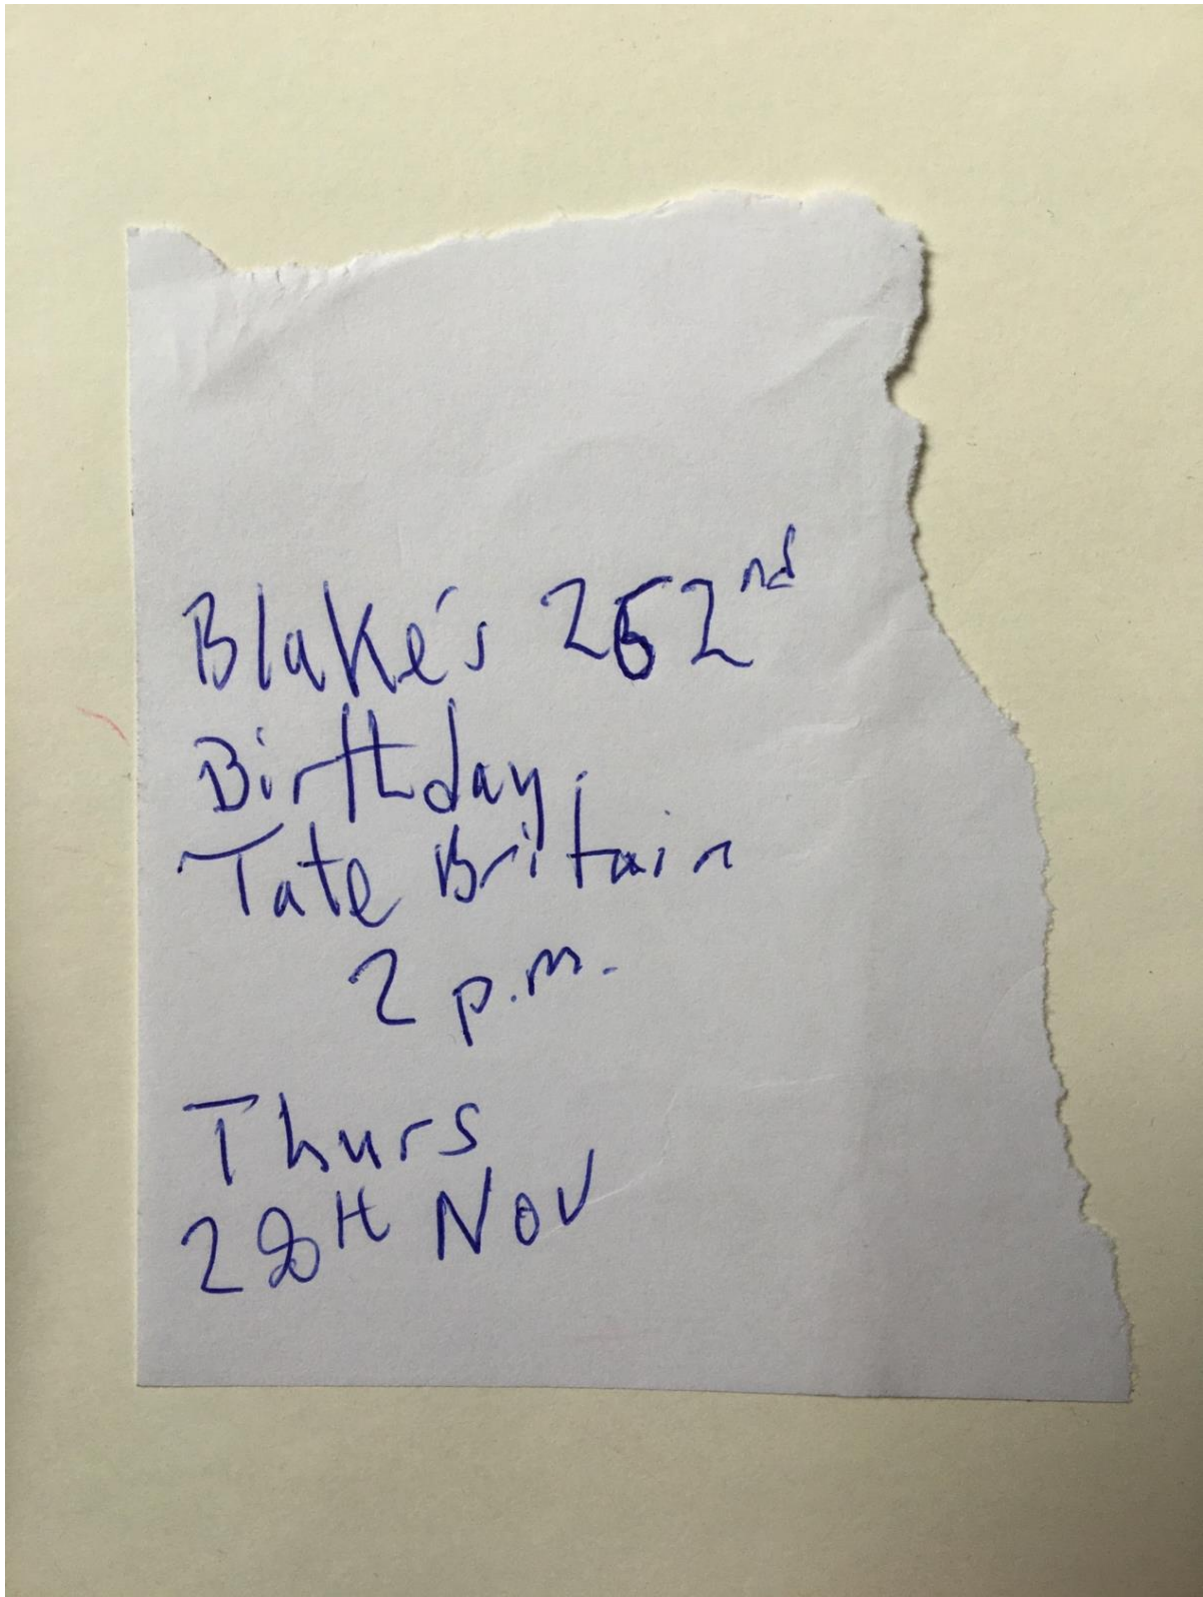 Blake's 262nd
Birthday.
Tate Britain
2 p.m.
Thurs
28th Nov